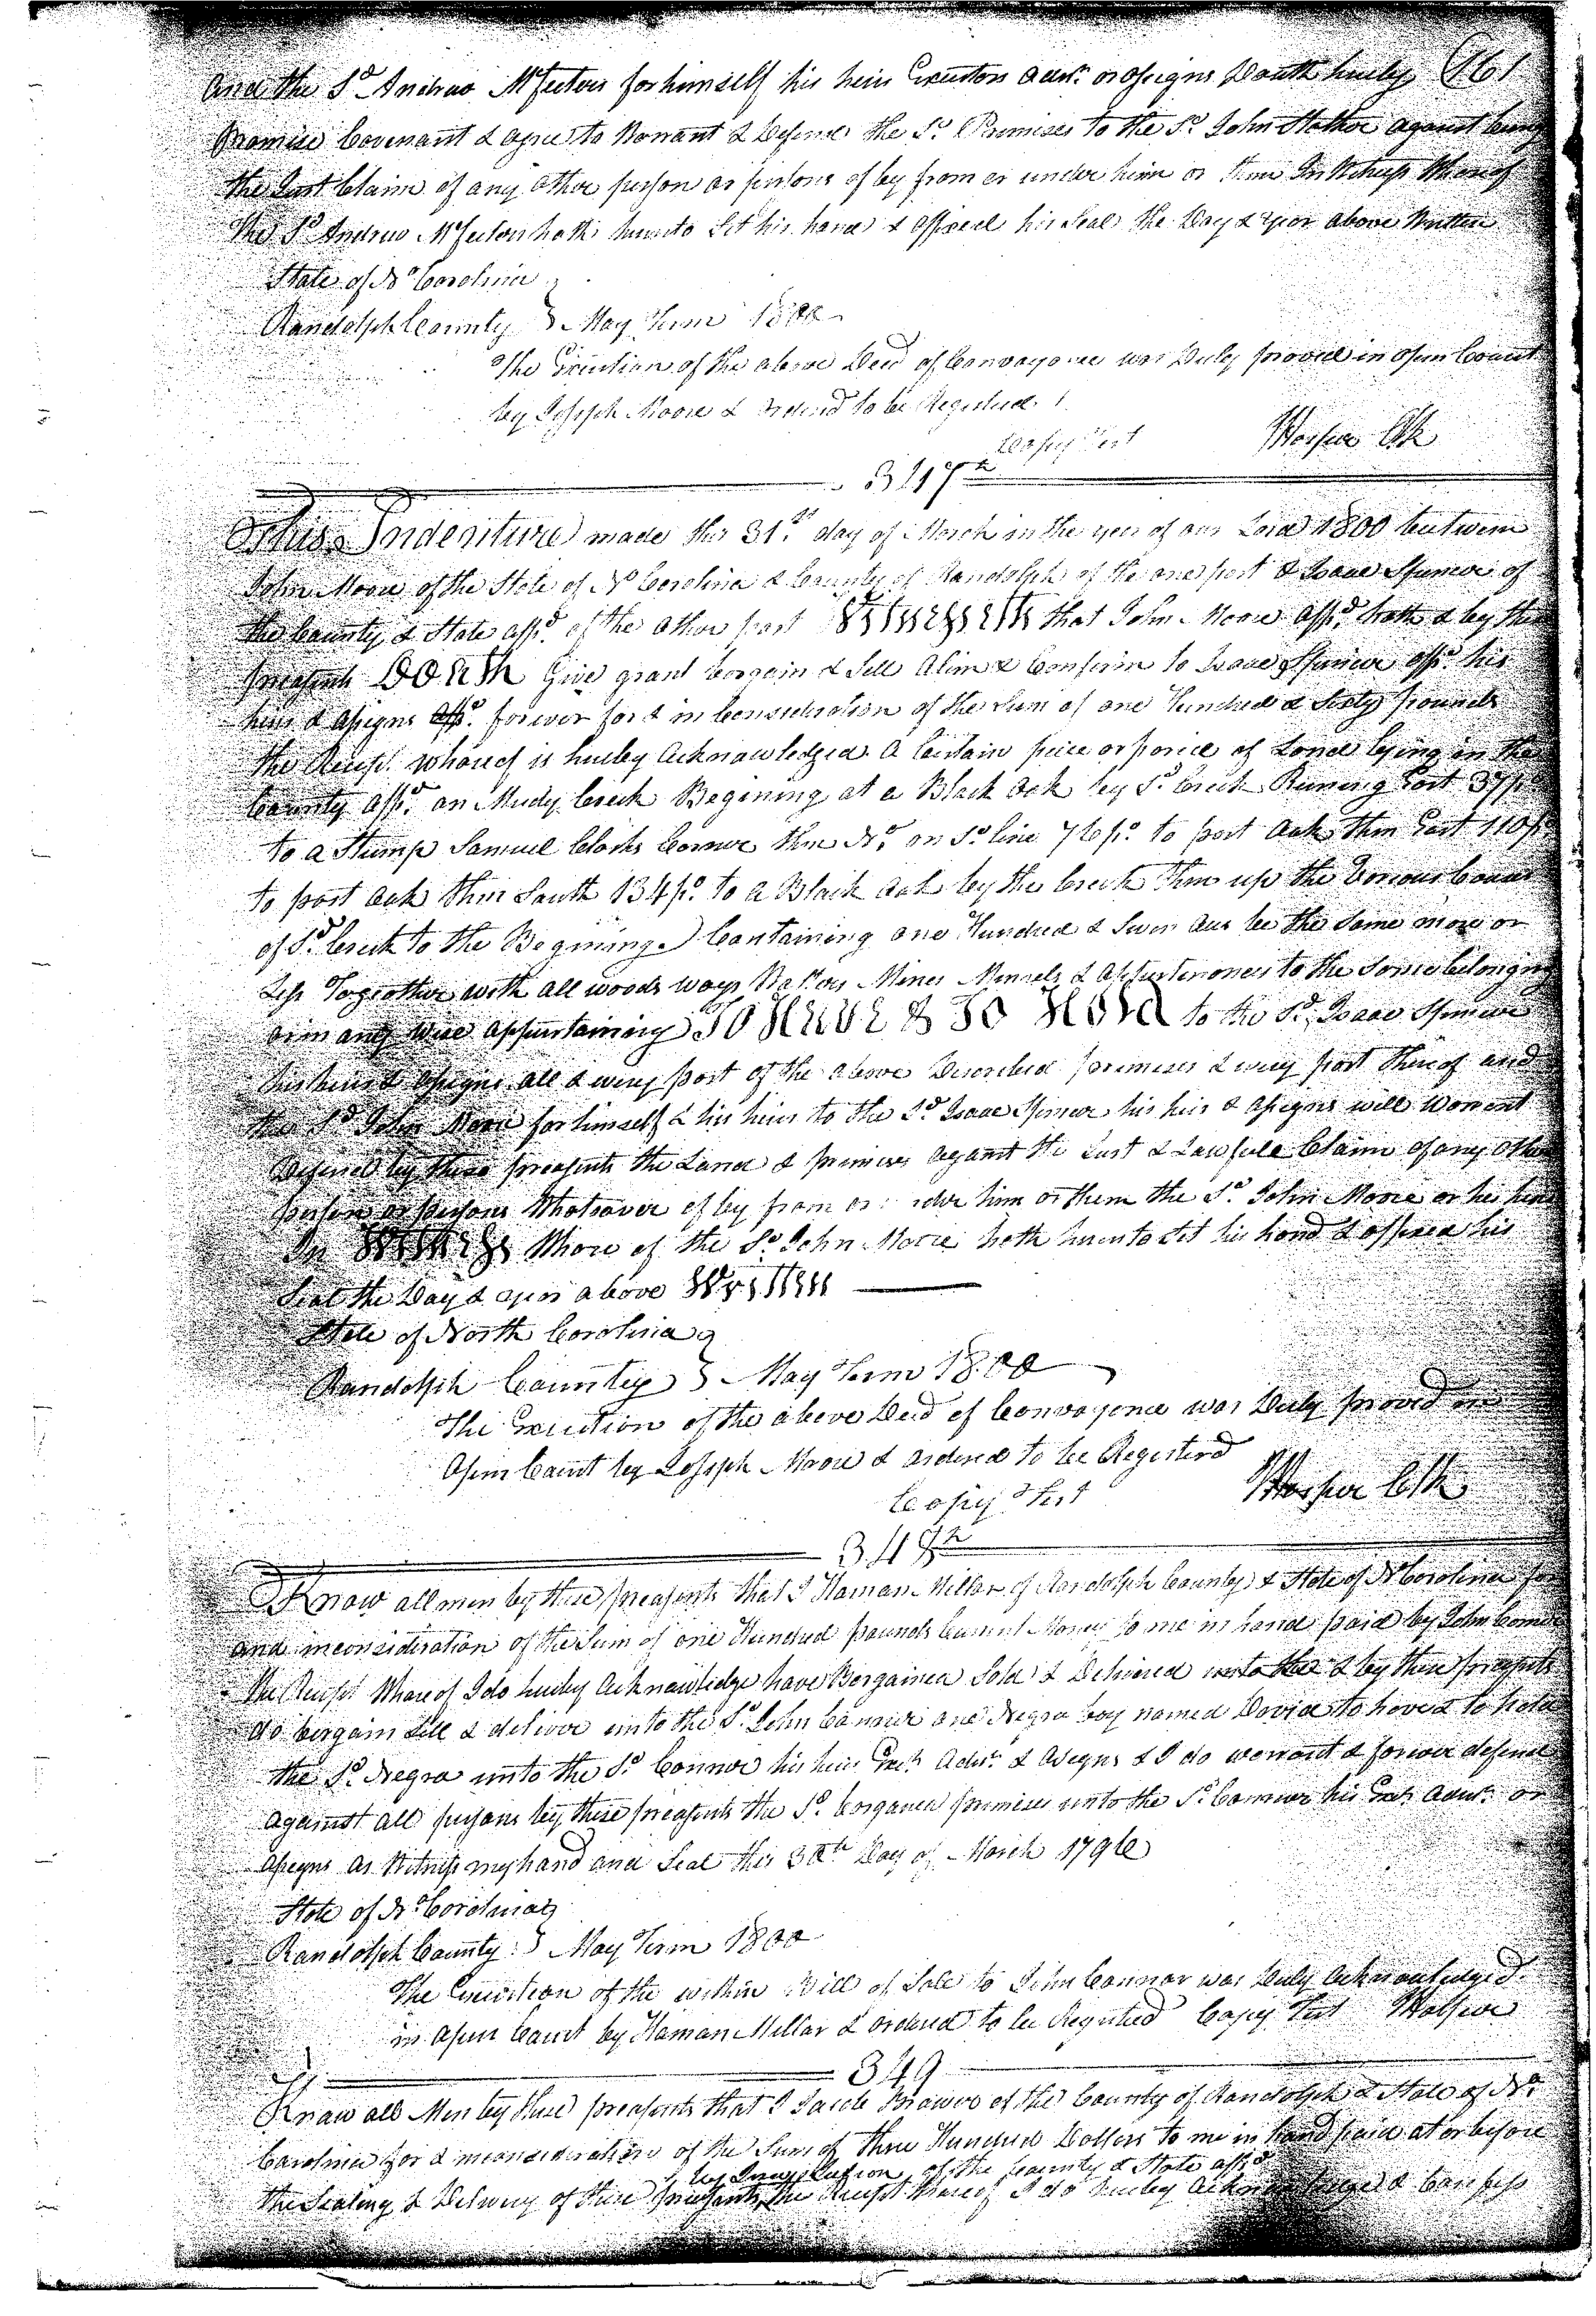 And the Sd. Andrew McFeeters for himself his heirs Executors Admr. or assigns Douth hereby 161
Promise Covenant & agree to Worrant & Defend the Sd. Premises to the Sd. John Stalker against being
the Just Claim of any other person or persons of by from or under him or them In Witness Whereof
The Sd. Andrew McFeeters hath hereunto Set his hand & affixed his Seal the Day & year above Written
State of No. Carolina
Randolph County } May Term 1800
The Execution of the above Deed of Convayance was Duly proved in open Court
by Joseph Moore & ordered to be Registered
Copy Test Harper Clk
347th
This Indenture made this 31st. day of March in the year of our Lord 1800 between
John Moore of the State of No. Carolina & County of Randolph of the one part & Isaac Spencer of
the County & State affd. of the other part Witnesseth that John Moore affd. hath & by these
presents Douth Give grant bargain & Sell Alien & Confirm to Isaac Spencer affd. his
heirs & assigns forever for & in Consideration of the sum of one Hundred & Sixty pounds
the Receipt whereof is hereby Acknowledged A Certain piece or parcel of Land lying in the
County affd. on Mudy Creek Begining at a Black Oak by Sd. Creek Runing East 37 po.
to a Stump Samuel Clarks Corner then No. on Sd. line 76 po. to post oak then East 110 po.
to post oak then South 134 po. to a Black oak by the Creek then up the Various Courses
of Sd. Creek to the Begining Containing one Hundred & Seven Acres be the same more or
Less Together with all woods ways Waters Mines Minerals & Appurtenances to the same belonging
or in any wise appertaining To Have & To Hold to the Sd. Isaac Spencer
his heirs & assigns all & every part of the above Described premises & every part thereof and
the Sd. John Moore for himself & his heirs to the Sd. Isaac Spencer his heirs & assigns will Worrent
Defend by these presents the Land & premises against the Just & Lawfull Claim of any other
person or persons Whatsoever of by from or under him or them the Sd. John Moore or his heirs
In Witness Where of the Sd. John Moore hath hereunto Set his hand & affixed his
Seal the Day & year above Written
State of North Carolina
Randolph County } May Term 1800
The Execution of the above Deed of Convoyence was Duly proved in
Open Court by Joseph Moore & ordered to be Registerd
Copy Test Harper Clk
348th
Know all men by these presents that I Haman Millar of Randolph County & State of N Carolina for
and inconsideration of the Sum of one Hundred pounds Current Money to me in hand paid by John Conner
the Receipt Whereof I do hereby Acknowledge have Bergained Sold & Delivered unto & by these presents
do bergain Sell & deliver unto the Sd. John Conner one Negro boy named David to have & to hold
the Sd. Negro unto the Sd. Connor his heirs Exrs. Admr. & Assigns & I do worrant & forever defend
against all persons by these presents the Sd. bergained premises unto the Sd. Connor his Exrs. Admr. or
assigns As Witness my hand and Seal this 30th Day of March 1796
State of No. Carolina
Randolph County } May Term 1800
The Execution of the within Bill of Sale to John Connor was Duly Acknowledged
in open Court by Haman Millar & ordered to be Registred Copy Test Harper
349
Know all Men by these presents that I Jacob Brower of the County of Randolph & State of No.
Carolina for & inconsideration of the Sum of three Hundred Dollers to me in hand paid at or before
of the County & State affd.
the Sealing & Delivery of these presents the Receipt thereof I do hereby Acknowledge & Confess